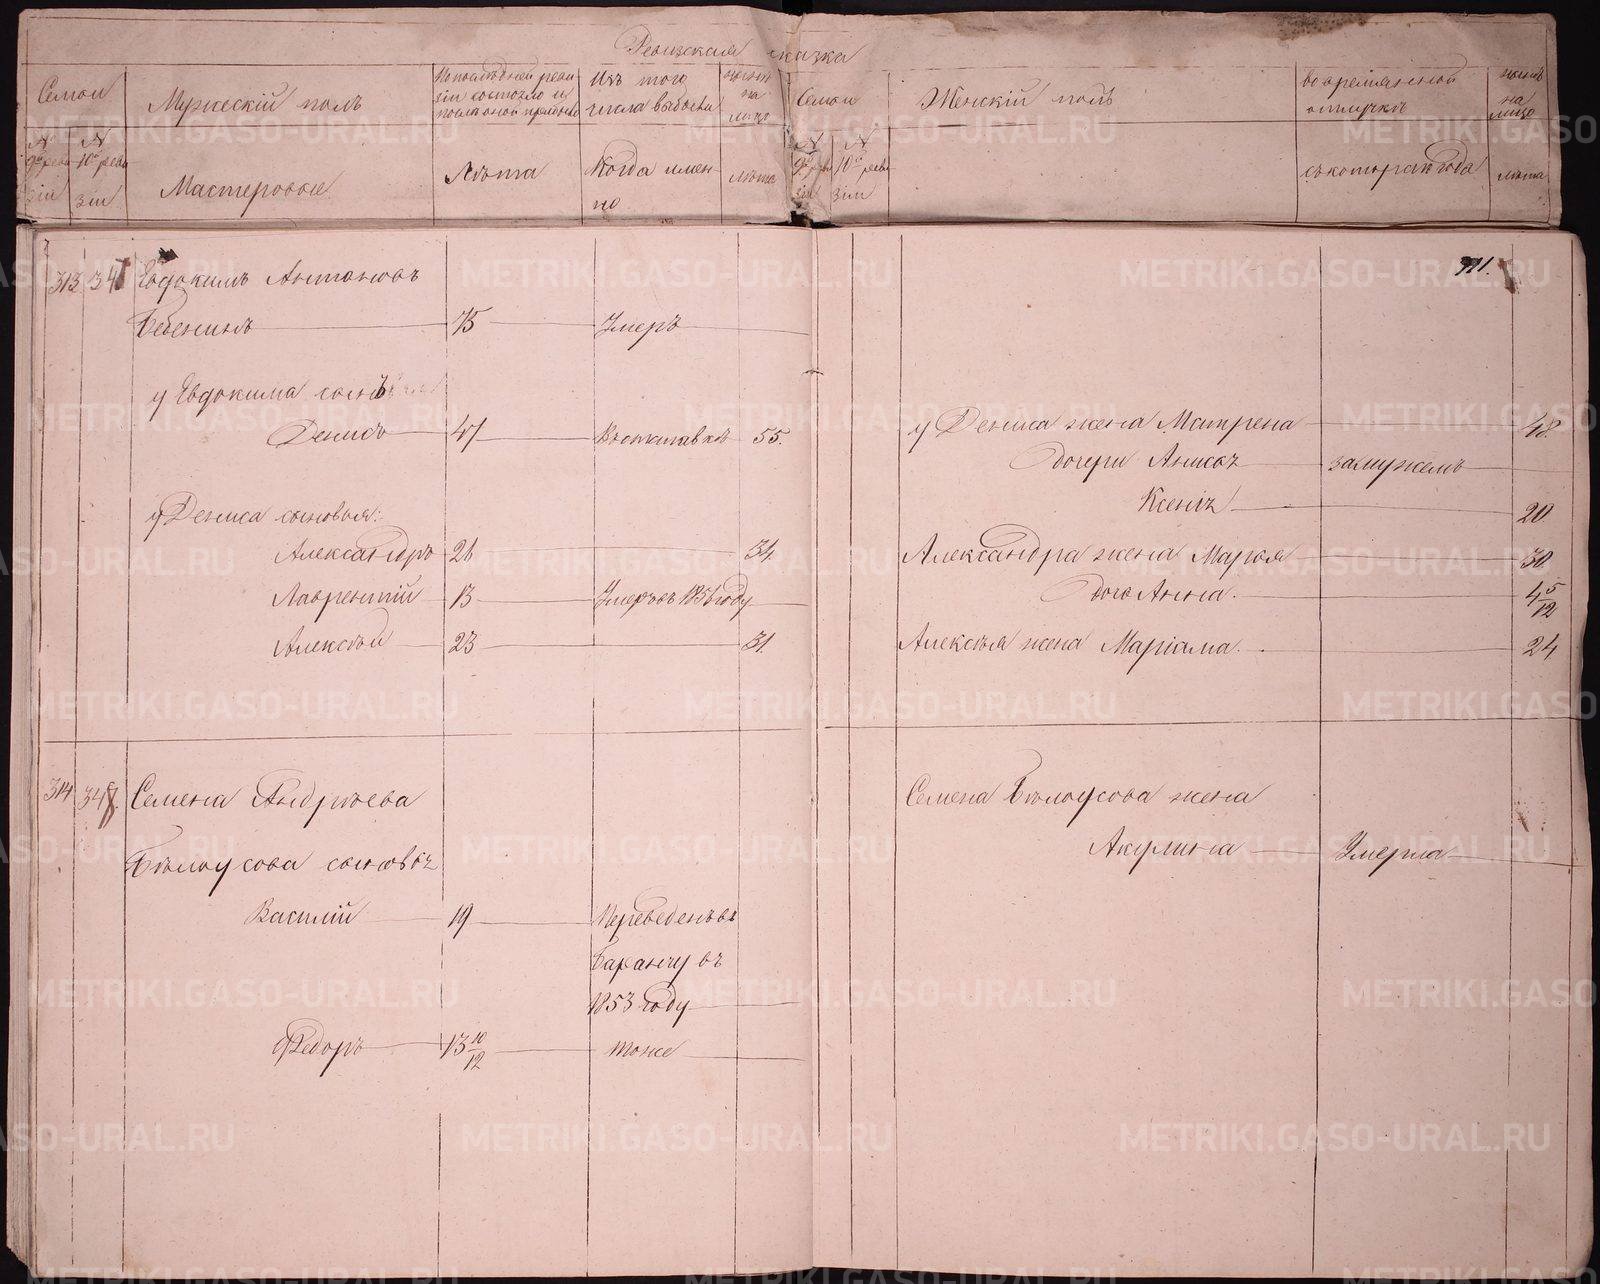 Ревизская сказка
Семьи
Мужескій полъ
По последней реви
зіи состояло и
Изъ того
числа выбыло
на
лицо
Семьи
Женскій полъ
во временной
отлучкѣ
на
лицо
№
9й реви
зіи
№
10й реви
зіи
Мастеровые
Лѣта
Когда имен-
но
лѣта
№
9й реви
зіи
№
10й реви
зіи
съ котораго года
лѣта
711.
313 347 Евдокимъ Антоновъ
Бебенинъ 75 Умеръ
у Евдокима сынъ
Денисъ 47 Въ отставкѣ 55.
у Дениса жена Матрена 48.
дочери Анисья замужемъ
Ксенія 20
у Дениса сыновья:
Александръ 26 34
Александра жена Марья 30
Лаврентій 13 Умеръ въ 1856 году
дочь Анна. 4 5/12
Алексѣй 23 31.
Алексѣя жена Маріама. 24
314 348. Семена Андрѣева
Семена Бѣлоусова жена
Бѣлоусова сыновья
Акулина Умерла
Василій 19 Переведенъ въ
Баранчу въ
1853 году
Федоръ 13 10/12 тоже
METRIKI.GASO-URAL.RU